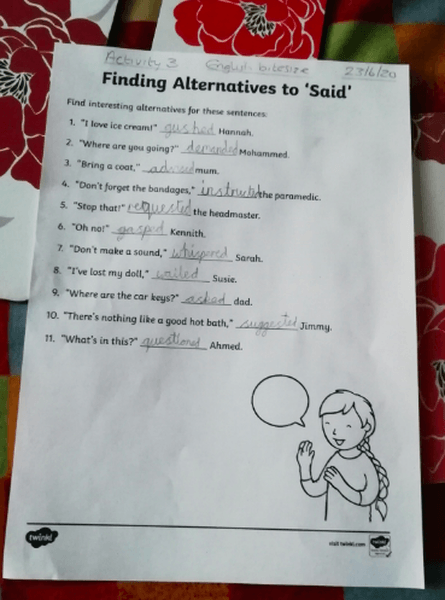 Activity 3 English bitesize 23/6/20
Finding Alternatives to 'Said'
Find interesting alternatives for these sentences:
1. "I love ice cream!" gushed Hannah.
2. "Where are you going?" demanded Mohammed.
3. "Bring a coat," advised mum.
4. "Don't forget the bandages," instructed the paramedic.
5. "Stop that!" requested the headmaster.
6. "Oh no!" gasped Kennith.
7. "Don't make a sound," whispered Sarah.
8. "I've lost my doll," wailed Susie.
9. "Where are the car keys?" asked dad.
10. "There's nothing like a good hot bath," suggested Jimmy.
11. "What's in this?" questioned Ahmed.
twinkl visit twinkl.com twinkl